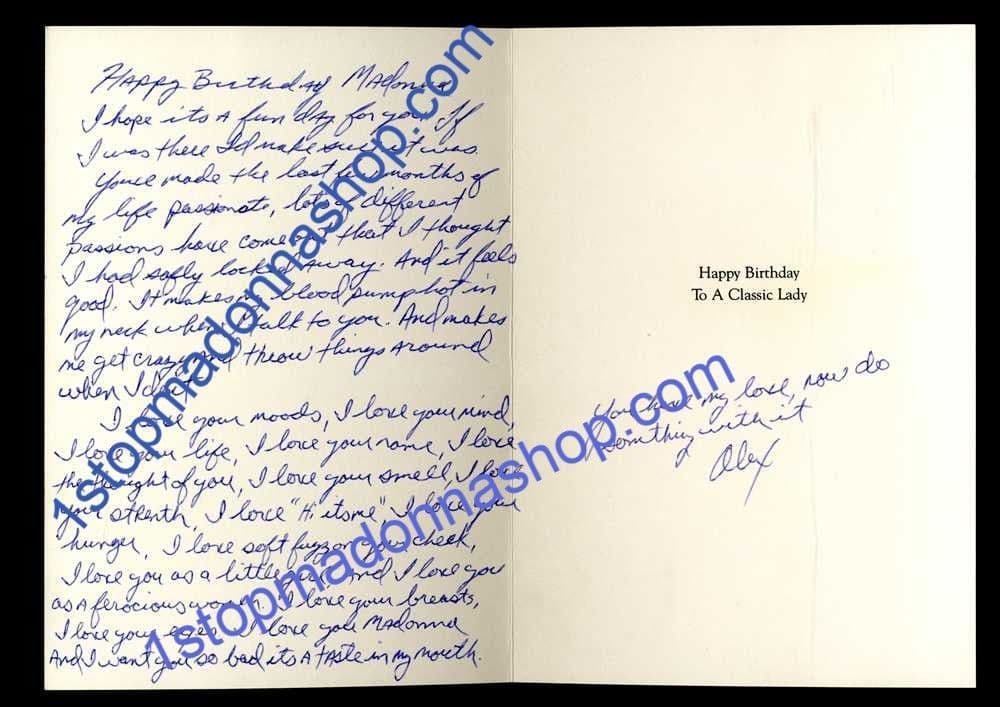 Happy Birthday Madonna
I hope its a fun day for you. If
I was there Id make sure it was.
Youve made the last few months of
my life passionate, lots of different
passions have come out that I thought
I had safly locked away. And it feels
good. It makes my blood pump hot in
my neck when I talk to you. And makes
me get crazy and throw things around
when I dont.
I love your moods, I love your mind,
I love your life, I love your name, I love
the thought of you, I love your smell, I love
your strenth, I love "Hi its me", I love your
hunger, I love soft fuzz on your cheek,
I love you as a little girl and I love you
as a ferocious woman. I love your breasts,
I love your eyes. I love you Madonna
And I want you so bad its a taste in my mouth.
Happy Birthday
To A Classic Lady
You have my love, now do
something with it
Alex
1stopmadonnashop.com
1stopmadonnashop.com